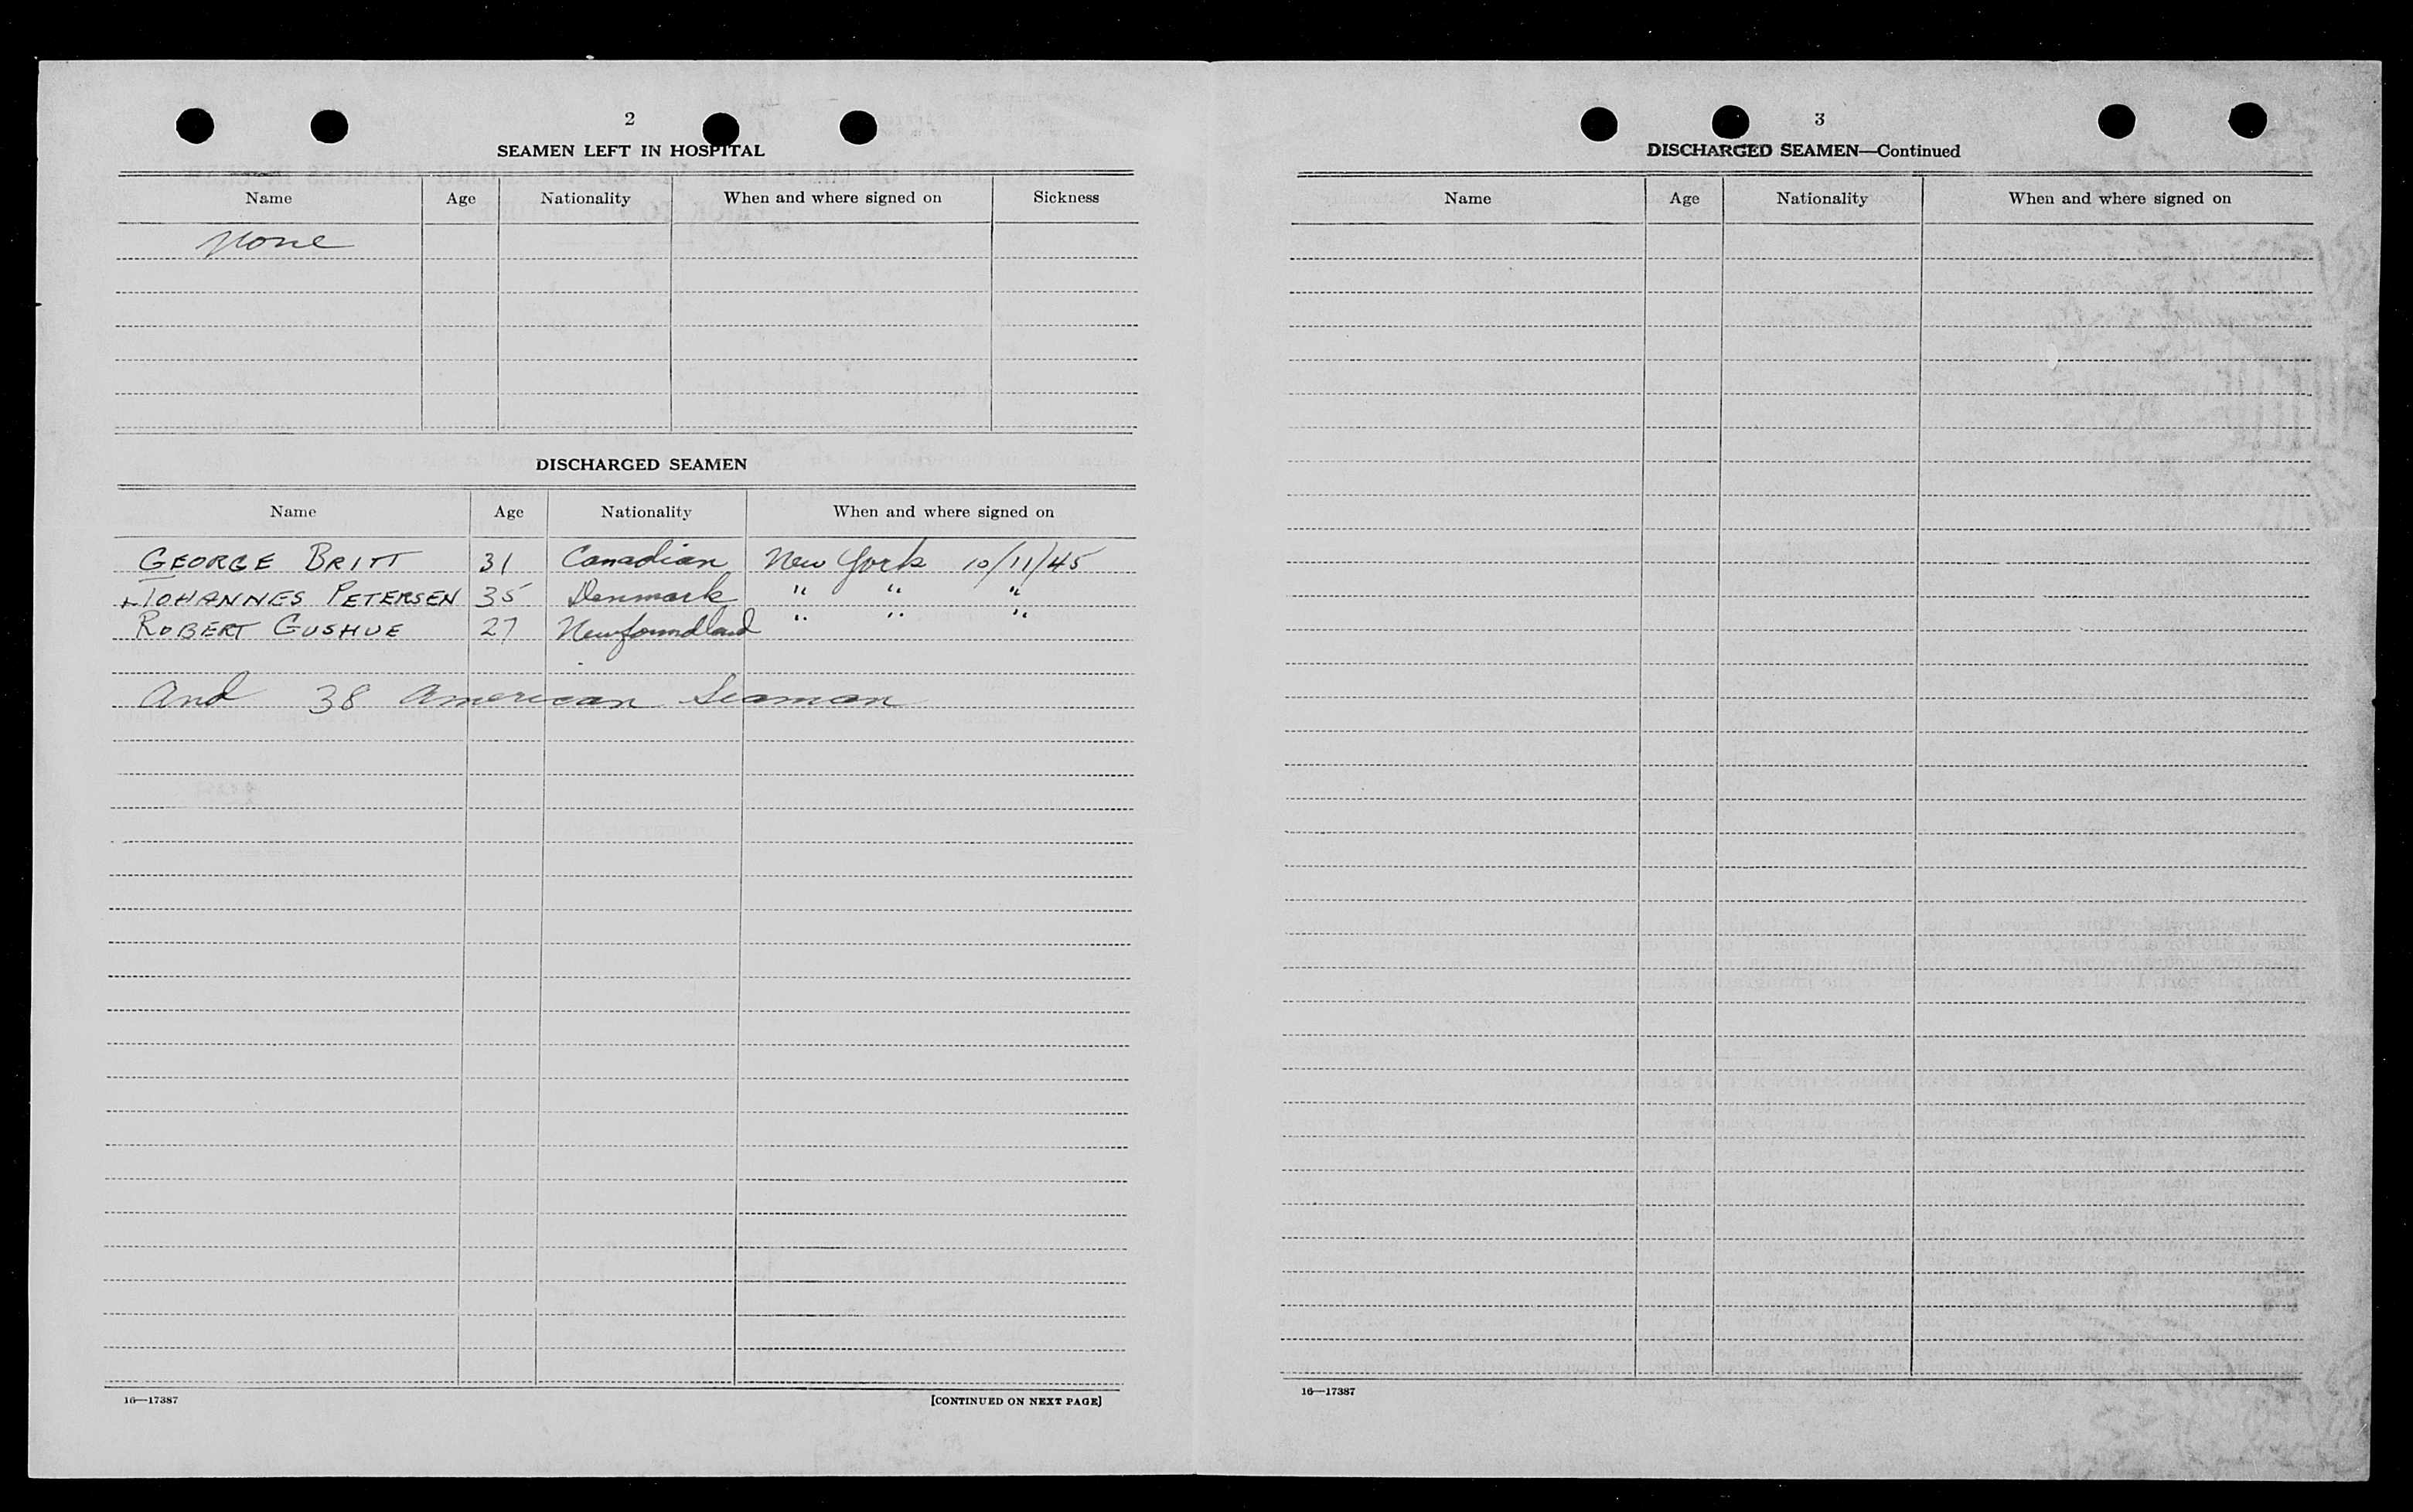 2
SEAMEN LEFT IN HOSPITAL
Name Age Nationality When and where signed on Sickness
None
DISCHARGED SEAMEN
Name Age Nationality When and where signed on
GEORGE BRITT 31 Canadian New York 10/11/45
JOHANNES PETERSEN 35 Denmark " " "
ROBERT GUSHUE 27 Newfoundland " " "
And 38 American Seaman
16—17387 [CONTINUED ON NEXT PAGE]
3
DISCHARGED SEAMEN—Continued
Name Age Nationality When and where signed on
16—17387